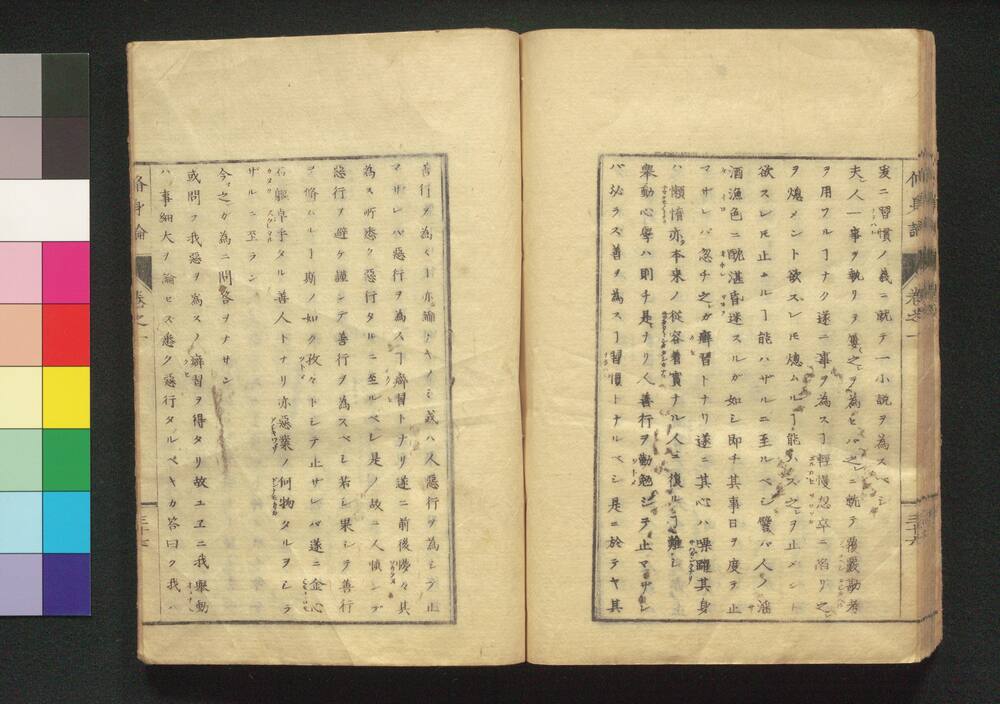 爰ニ習慣ノ義ニ就テ一小説ヲ為スベシ
夫人一事ヲ執リヲ之ヲ為セバ之ニ軌テ覆嚴勘考
ヲ用フルヿナク遂ニ事ヲ為スヿ輕慢忽卒ニ陷リ之
ヲ熄メント欲スレモ熄ムルヿ能ハズ之ヲ止メント
欲スレモ止ムルヿ能ハザルニ至ルベシ譬バ人ノ淫
酒漁色ニ酖湛昏迷スルガ如シ即チ其事日ヲ度ヲ止
マザレバ忽チ之ガ癖習トナリ遂ニ其心ハ噪躍其身
ハ懶惰亦本来ノ從容着實ナル人ニ復ルヿ難シ
舉動心學ハ則チ是ナリ人善行ヲ勤勉シテ止マザレ
バ必ラズ善ヲ為スヿ習慣トナルベシ是ニ於テヤ其
脩身論 卷之一 三十六
善行ヲ為ス亦ナキノミ或ハ人惡行ヲ為シテ止
マザレバ惡行ヲ為スヿ癖習トナリ遂ニ前後慘々其
為ス所悉ク惡行タルニ至ルベシ是ノ故ニ人慎ンデ
惡行ヲ避ケ謹ンデ善行ヲ為スベシ若シ果シテ善行
ヲ脩ムルヿ斯ノ如ク孜々トシテ止ザレバ遂ニ金心
石軀卓乎タル善人トナリ亦惡業ノ何物タルヲシラ
ザルニ至ラン
今之ガ為ニ問答ヲナサン
或問フ我惡ヲ為スノ癖習ヲ得タリ故ユヱニ我舉動
ハ事細大ヲ論セス悉ク惡行タルベキカ答曰ク我ハ
脩身論 卷之一